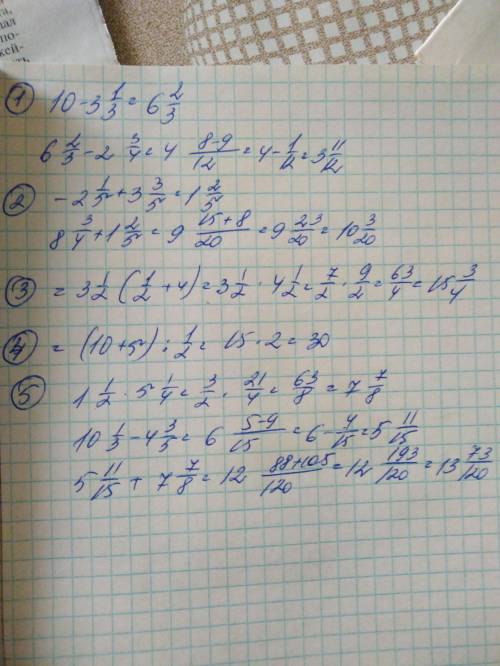 та,
ная
по-
кей-
1 10-3 1/3 = 6 2/3
6 2/3 - 2 3/4 = 4 8-9/12 = 4 - 1/12 = 3 11/12
2 -2 1/5 + 3 3/5 = 1 2/5
8 3/4 + 1 2/5 = 9 15+8/20 = 9 23/20 = 10 3/20
3 = 3 1/2 (1/2 + 4) = 3 1/2 · 4 1/2 = 7/2 · 9/2 = 63/4 = 15 3/4
4 = (10+5) : 1/2 = 15 · 2 = 30
5
1 1/2 · 5 1/4 = 3/2 · 21/4 = 63/8 = 7 7/8
10 1/3 - 4 3/5 = 6 5-9/15 = 6 - 4/15 = 5 11/15
5 11/15 + 7 7/8 = 12 88+105/120 = 12 193/120 = 13 73/120